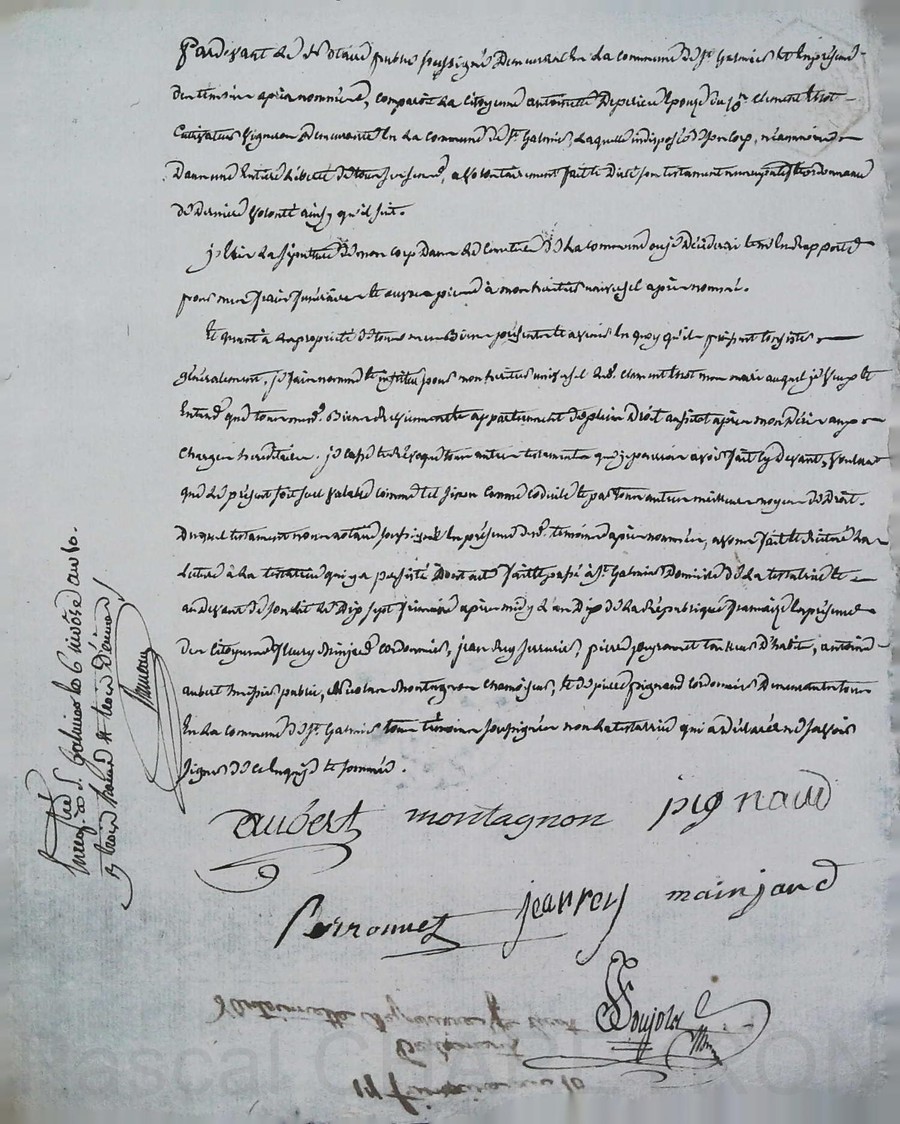 Pardevant le Notaire public soussigné Demeurant en La commune de St Galmier Et En présence
Des témoins après nommés, comparoit La citoyenne antoinette Deperieu Epouse du Cn Clement
Cultivateur Vigneron Demeurante En La commune de St Galmier, Laquelle indisposée de son corp, néanmoins
Dans une Entière Liberté de tous ses sens, a volontairement fait et Dicté son testament nuncupatif et ordonnance
de Dernière volonté ainsy qu'il suit.
j'élis La sépulture de mon corp Dans Le Cimetière de La commune où je Décéderai Et m'En Rapporte
pour mes frais funéraires Et œuvres pies à mon héritier universel après nommé.
Et quant à La propriété de tous mes Biens présents Et avenir En quoy qu'ils puissent Consister
généralement, je fais nomme Et institue pour mon héritier universel Led. Clement mon mari auquel je veux Et
Entend que tous mesd. Biens Reviennent Et appartiennent de plein Droit aussitot après mon Décès aux
Charges héréditaires. je Casse Et Révoque tous autres testaments que je pourrois avoir fait Cy Devant, voulant
que Le présent soit seul valable comme tel sinon comme codicile Et par tous autres meilleurs moyens de Droit.
Duquel testament nous notaire soussigné En présence desd. témoins après nommés, avons fait Et Réitéré La
Lecture à La testatrice qui y a persisté Dont acte fait Et passé à St Galmier Domicile de La testatrice Et
au Devant de son Lit Le Dix sept frimaire après midy L'an Dix de La République française En présence
Des Citoyens fleury Minjard cordonnier, jean Rey serrurier, pierre peyronnet tailleur D'habits, antoine
aubert huissier public, Nicolas Montagnon Chamoiseur, Et de pierre pignaud Cordonnier Demeurants tous
En La commune de St Galmier tous témoins soussignés non La testatrice qui a Déclaré ne savoir
Signer de ce Enquise Et sommée.
aubert montagnon pignaud
Perronnet jean rey mainjard
Soujolas
Nre
Antoinette
17 frimaire an 10
Enreg. à St Galmier le 6 nivôse an 10.